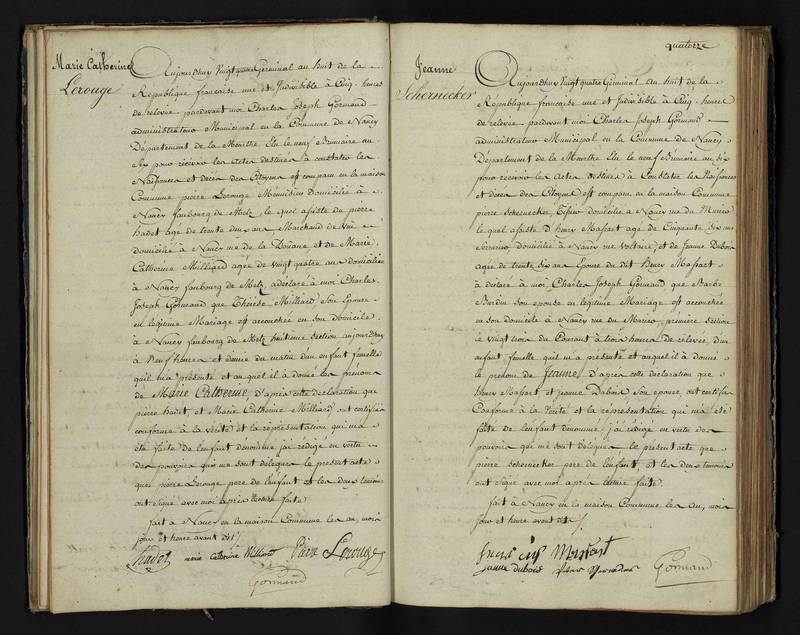 Marie Catherine
Lerouge
Aujourdhuy Vingt quatre Germinal au huit de la
République française une et Indivisible à Cinq heures
de relevée pardevant moi Charles Joseph Gormand
administrateur Municipal en la Commune de Nancy
Département de la Meurthe Elu le neuf Brumaire an
Six pour recevoir les Actes destinés à constater les
Naissances et décès des Citoyens est comparu en la maison
Commune pierre Lerouge Menuisier Domicilié à
Nancy faubourg de Metz, le quel assisté de pierre
hadet age de trente deux ans Marchand de Vin
domicilié à Nancy rue de la Douane et de Marie
Catherine Milliard agée de vingt quatre ans domiciliée
à Nancy faubourg de Metz, a déclaré à moi Charles
Joseph Gormand que Thérèse Milliard son Epouse
en légitime Mariage est accouchée en son domicile
à Nancy faubourg de Metz huitieme section aujourdhuy
à Neuf heures et demie du matin d'un enfant femelle
quil m'a présenté et au quel il a donné les prénoms
de Marie Catherine d'après cette déclaration que
pierre hadet, et Marie Catherine Milliard ont certifiée
conforme à la vérité et la représentation qui m'a
été faite de l'enfant dénommé j'ai rédigé en vertu
des pouvoirs qui me sont délégués le présent acte
que pierre Lerouge pere de l'enfant et les deux temoins
ont signé avec moi après lecture faite
fait à Nancy en la maison Commune les an, mois
jour et heure avant dit
hadet marie catherine Milliard Pierre Lerouge
Gormand
quatorze
Jeanne
Schernecker
Aujourdhuy Vingt quatre Germinal an huit de la
République francaise une et Indivisible à Cinq heures
de relevée pardevant moi Charles Joseph Gormand
administrateur Municipal en la Commune de Nancy
Département de la Meurthe Elu le neuf Brumaire an six
pour recevoir les Actes destinés à Constater les Naissances
et décès des Citoyens est comparu en la maison Commune
pierre Schernecker, domicilié a Nancy rue du
le quel assisté d'henry Massart age de Cinquante six ans
Serrurier domicilié à Nancy rue Voltaire, et de Jeanne Dubois
agée de trente six ans Epouse du dit Henry Massart
à déclaré à moi Charles Joseph Gormand que Barbe
son epouse en légitime Mariage est accouchée
en son domicile à Nancy rue du première section
le vingt trois du Courant à trois heures de relevée, d'un
enfant femelle quil m'a présenté et auquel il à donné
le prenom de Jeanne d'après cette déclaration que
henry Massart et jeanne Dubois son epouse, ont certifiée
Conforme à la Vérité et la représentation qui m'a été
faite de l'enfant dénommé j'ai rédigé en vertu des
pouvoirs qui me sont délégués le présent acte que
pierre schernecker pere de l'enfant, et les deux temoins
ont signé avec moi après lecture faite
fait à Nancy en la maison Commune les an, mois
jour et heure avant dit
Massart
jeanne dubois Gormand